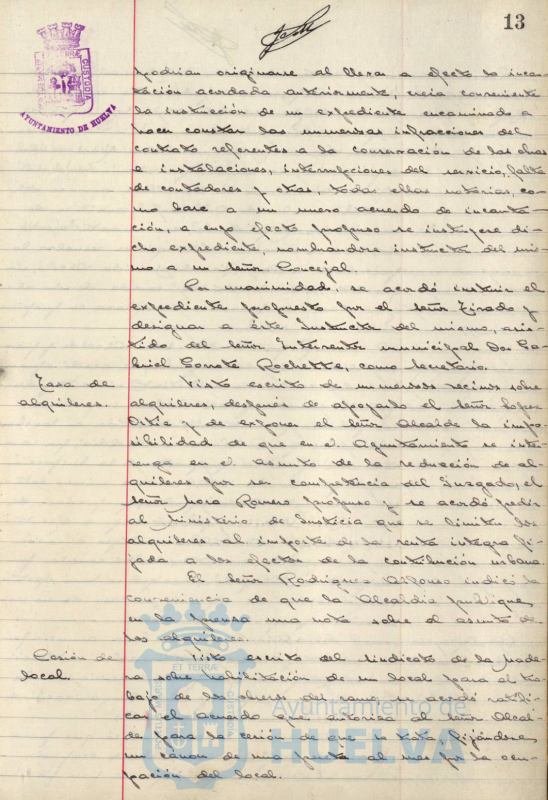 13
AYUNTAMIENTO DE HUELVA
podrian originarse al llevar a efecto la incau-
tación acordada anteriormente, creia conveniente
la instrucción de un expediente encaminado a
hacer constar las numerosas infracciones del
contrato referentes a la conservación de las obras
e instalaciones, interrupciones del servicio, falta
de contadores y otras, todas ellas notorias, co-
mo base a un nuevo acuerdo de incauta-
ción, a cuyo efecto propuso se instruyere di-
cho expediente, nombrandose instructor del mis-
mo a un señor Concejal.
Por unanimidad, se acordó instruir el
expediente propuesto por el señor Tirado y
designar a éste Instructor del mismo, asis-
tido del señor Interventor municipal Don Ga-
briel Gorrote Rochette, como Secretario.
Tasa de
alquileres.
Visto escrito de numerosos vecinos sobre
alquileres, después de apoyarlo el señor López
Ortiz y de exponer el señor Alcalde la impo-
sibilidad de que en el Ayuntamiento se inter-
venga en el asunto de la reducción de al-
quileres por ser competencia del Juzgado, el
señor Mora Romero propuso y se acordó pedir
al Ministerio de Justicia que se limiten los
alquileres al importe de la renta integra fi-
jada a los efectos de la contribución urbana.
El señor Rodriguez Alfonso indicó la
conveniencia de que la Alcaldia publique
en la prensa una nota sobre el asunto de
los alquileres.
Cesión de
local.
Visto escrito del Sindicato de la made-
ra sobre habilitación de un local para el tra-
bajo de los obreros del ramo, se acordó ratifi-
car el acuerdo que autoriza al señor Alcal-
de para la cesión de que se trata, fijándose
un cánon de una peseta al mes por la ocu-
pación del local.
Ayuntamiento de
HUELVA